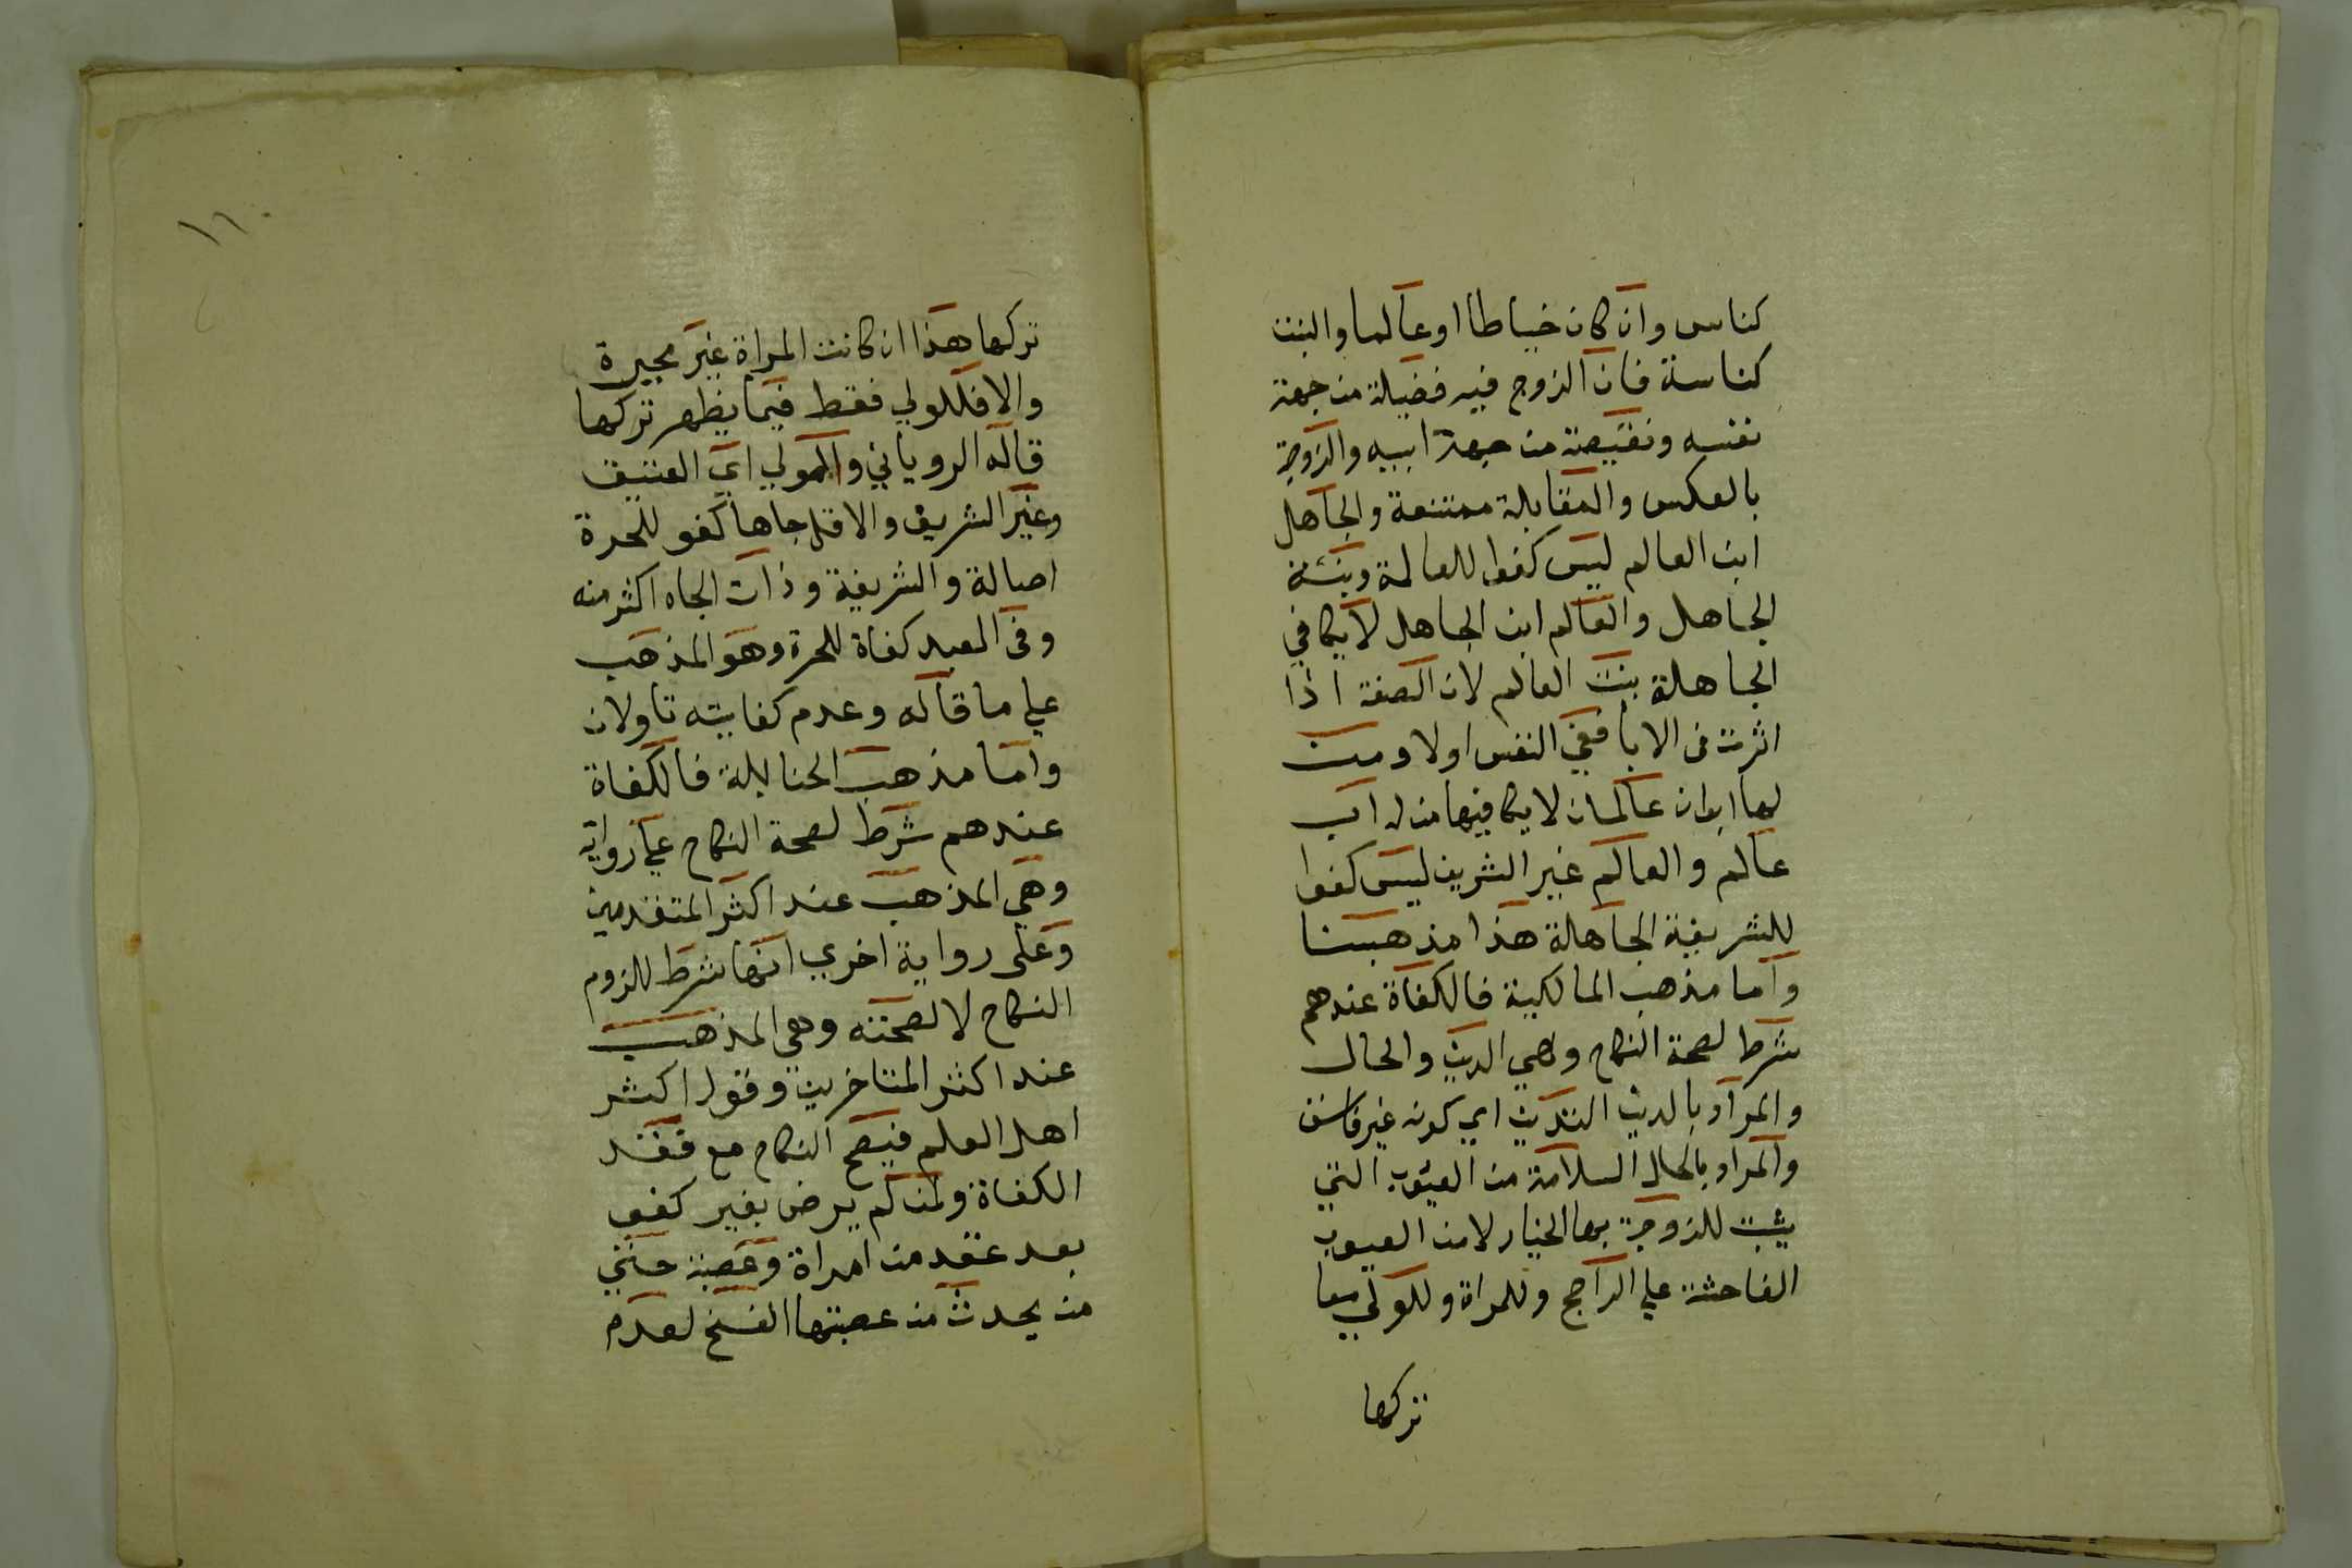 كناس وان كان خياطا او عالما والبنت
كناسة فان الزوج فيه فضيلة من جهة
نفسه ونقيصة من جهة ابيه والزوجة
بالعكس والمقابلة ممتنعة والجاهل
ابن العالم ليس كفوا للعالمة وبنته
الجاهل والعالم ابن الجاهل لا يكافي
الجاهلة بنت العالم لان الصفة اذا
اثرت في الابا ففي النفس اولا ومن
لها ابوان عالمان لا يكافيها من له اب
عالم والعالم غير الشريف ليس كفوا
للشريفة الجاهلة هذا مذهبنا
واما مذهب المالكية فالكفاة عندهم
شرط لصحة النكاح وهي الدين والحال
والمراد بالدين التدين اي كونه غير فاسق
والمراد بالحال السلامة من العيوب التي
يثبت للزوجة بها الخيار لا من العيوب
الفاحشة علي الراجح وللمراة وللولي معا
تركها
١١٠
تركها هذا ان كانت المراة غير مجبرة
والا فللولي فقط فيما يظهر تركها
قاله الروياني والمولي اي العتيق
وغير الشريف والاقل جاها كفو للحرة
اصالة والشريفة وذات الجاه اكثر منه
وفي العبد كفاة للحرة وهو المذهب
علي ما قاله وعدم كفايته تاولان
واما مذهب الحنابلة فالكفاة
عندهم شرط لصحة النكاح علي رواية
وهي المذهب عند اكثر المتقدمين
وعلى رواية اخري انها شرط للزوم
النكاح لا لصحته وهي المذهب
عند اكثر المتاخرين وقول اكثر
اهل العلم فيصح النكاح مع فقد
الكفاة ولمن لم يرض بغير كفو
بعد عقد من امراة وعصبة حتي
من يحدث من عصبتها الفسخ لعدم